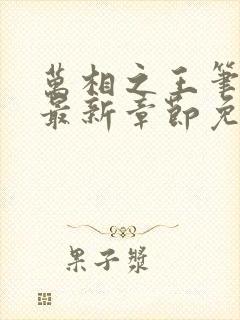 萬相之王筆
最新章節免
果子漿